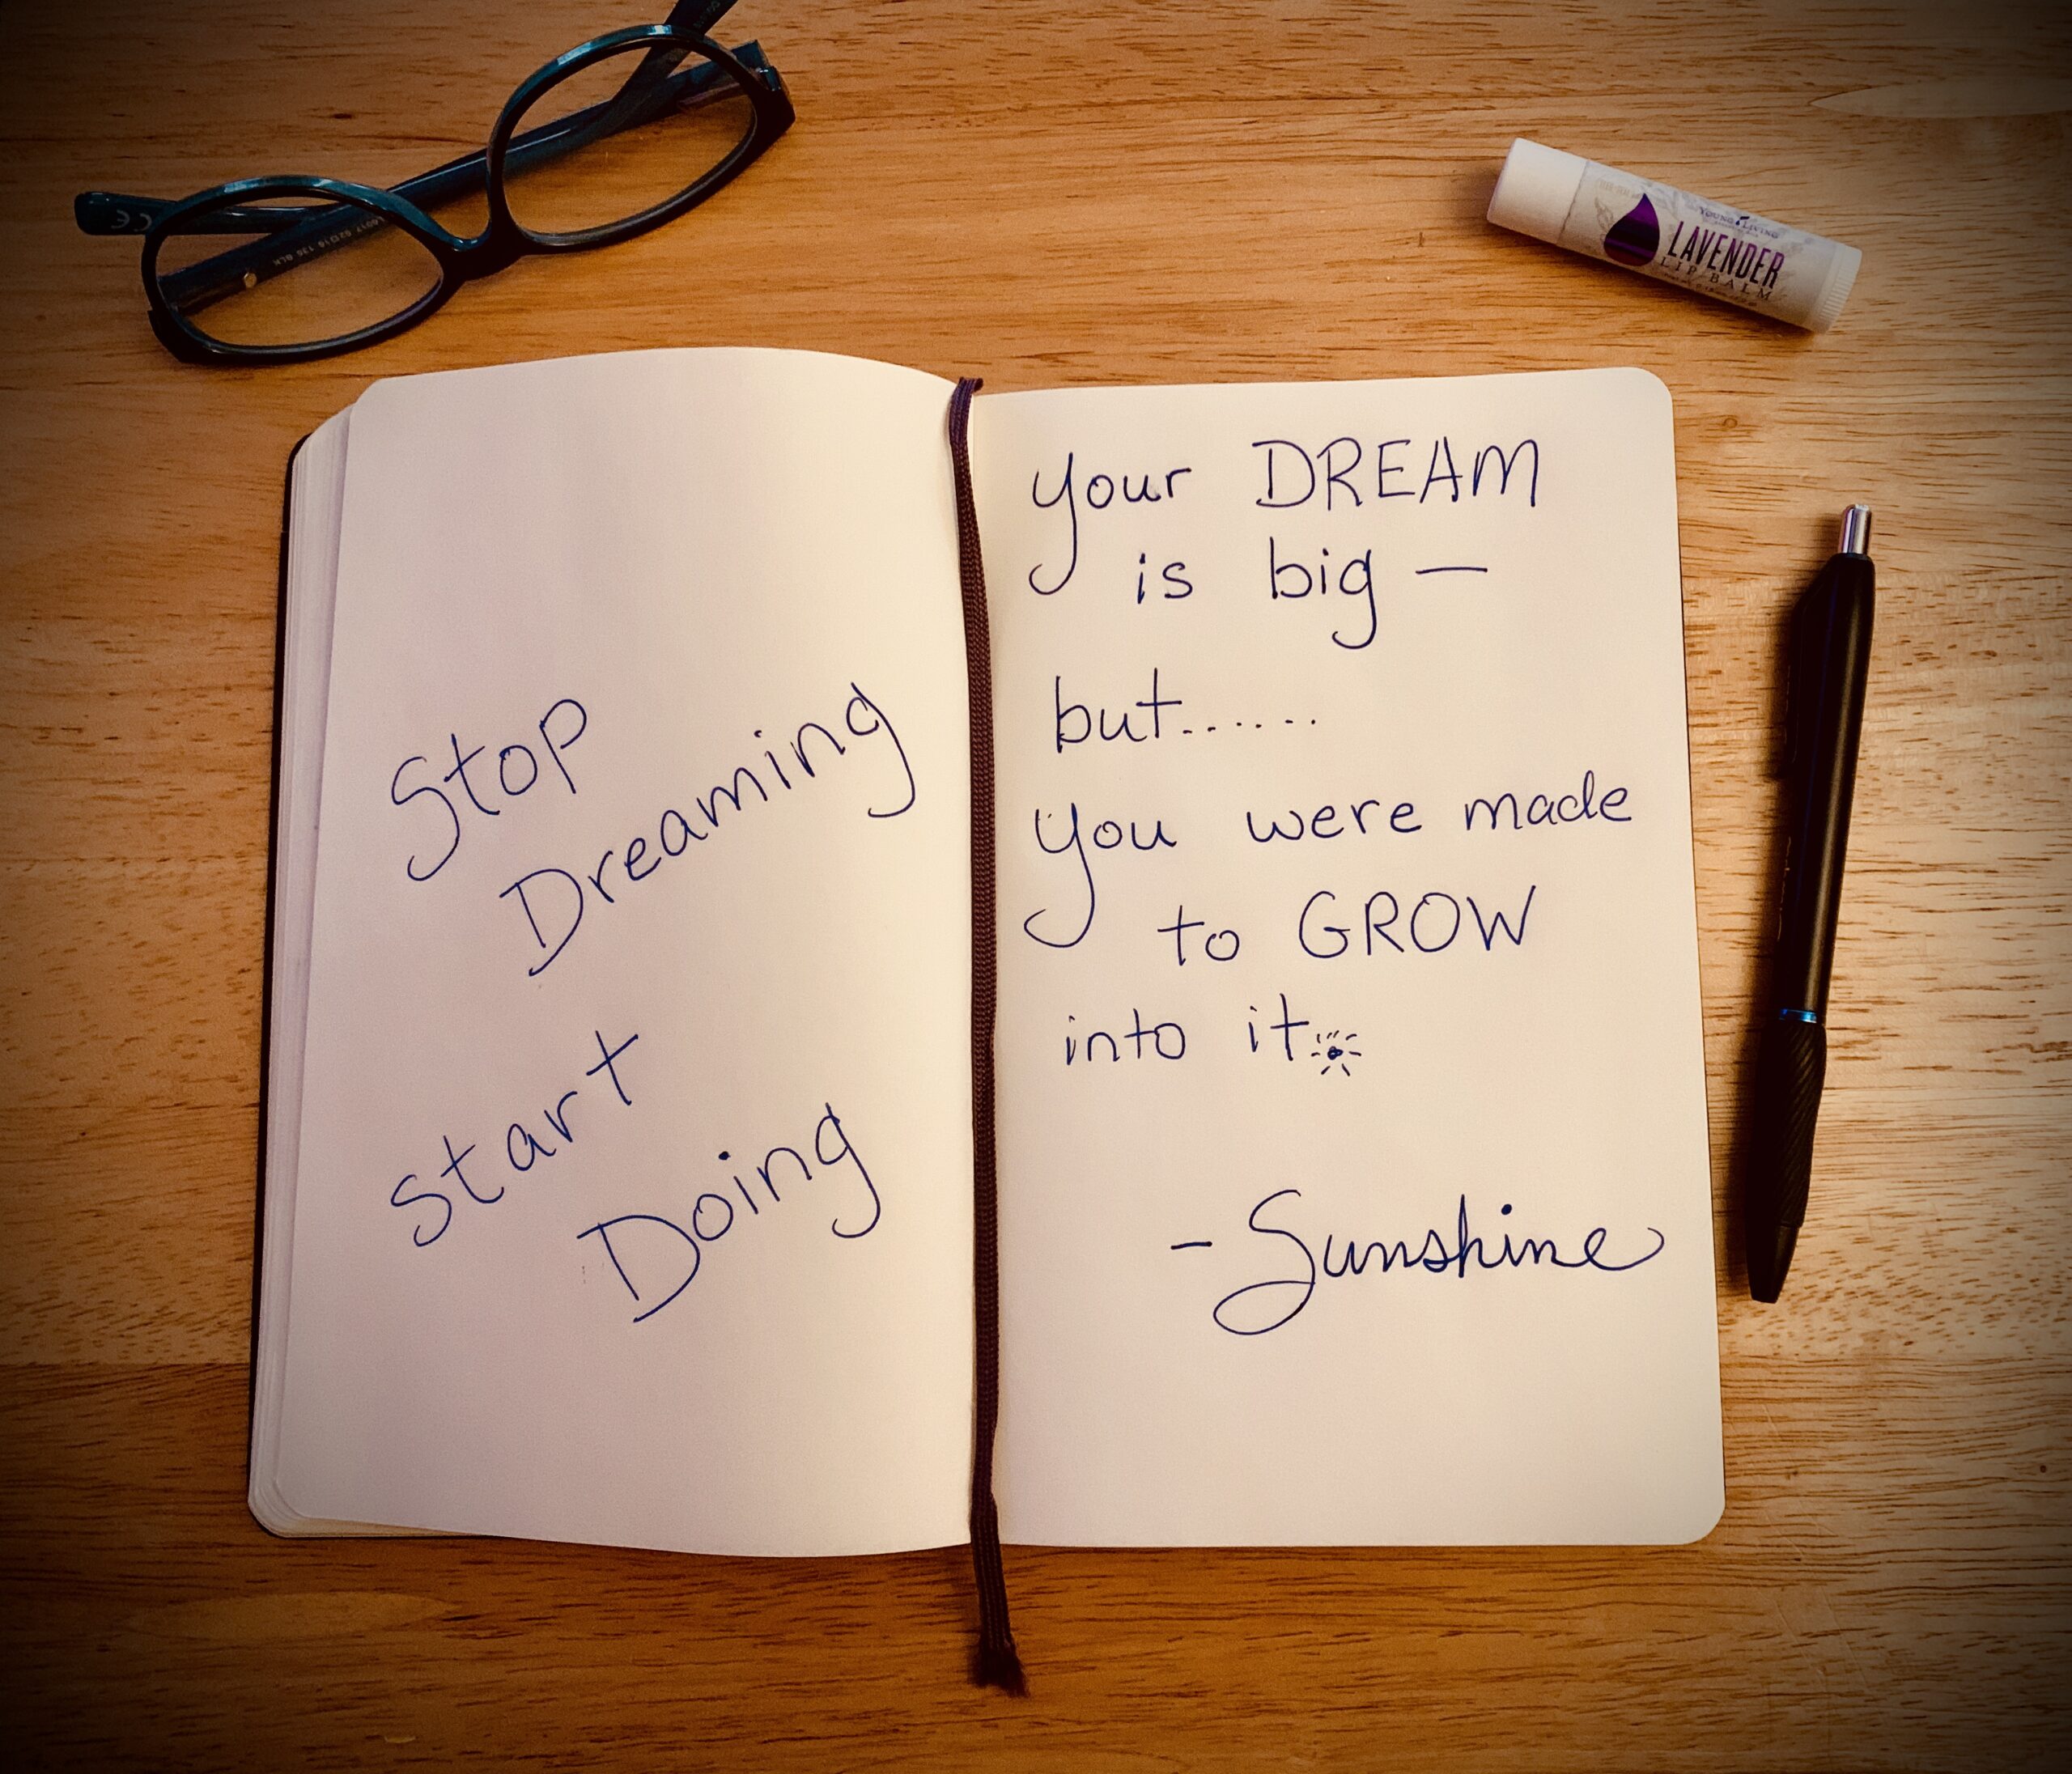 Stop
Dreaming
Start
Doing
your DREAM
is big —
but......
you were made
to GROW
into it.
- Sunshine
YOUNG LIVING
LAVENDER
LIP BALM